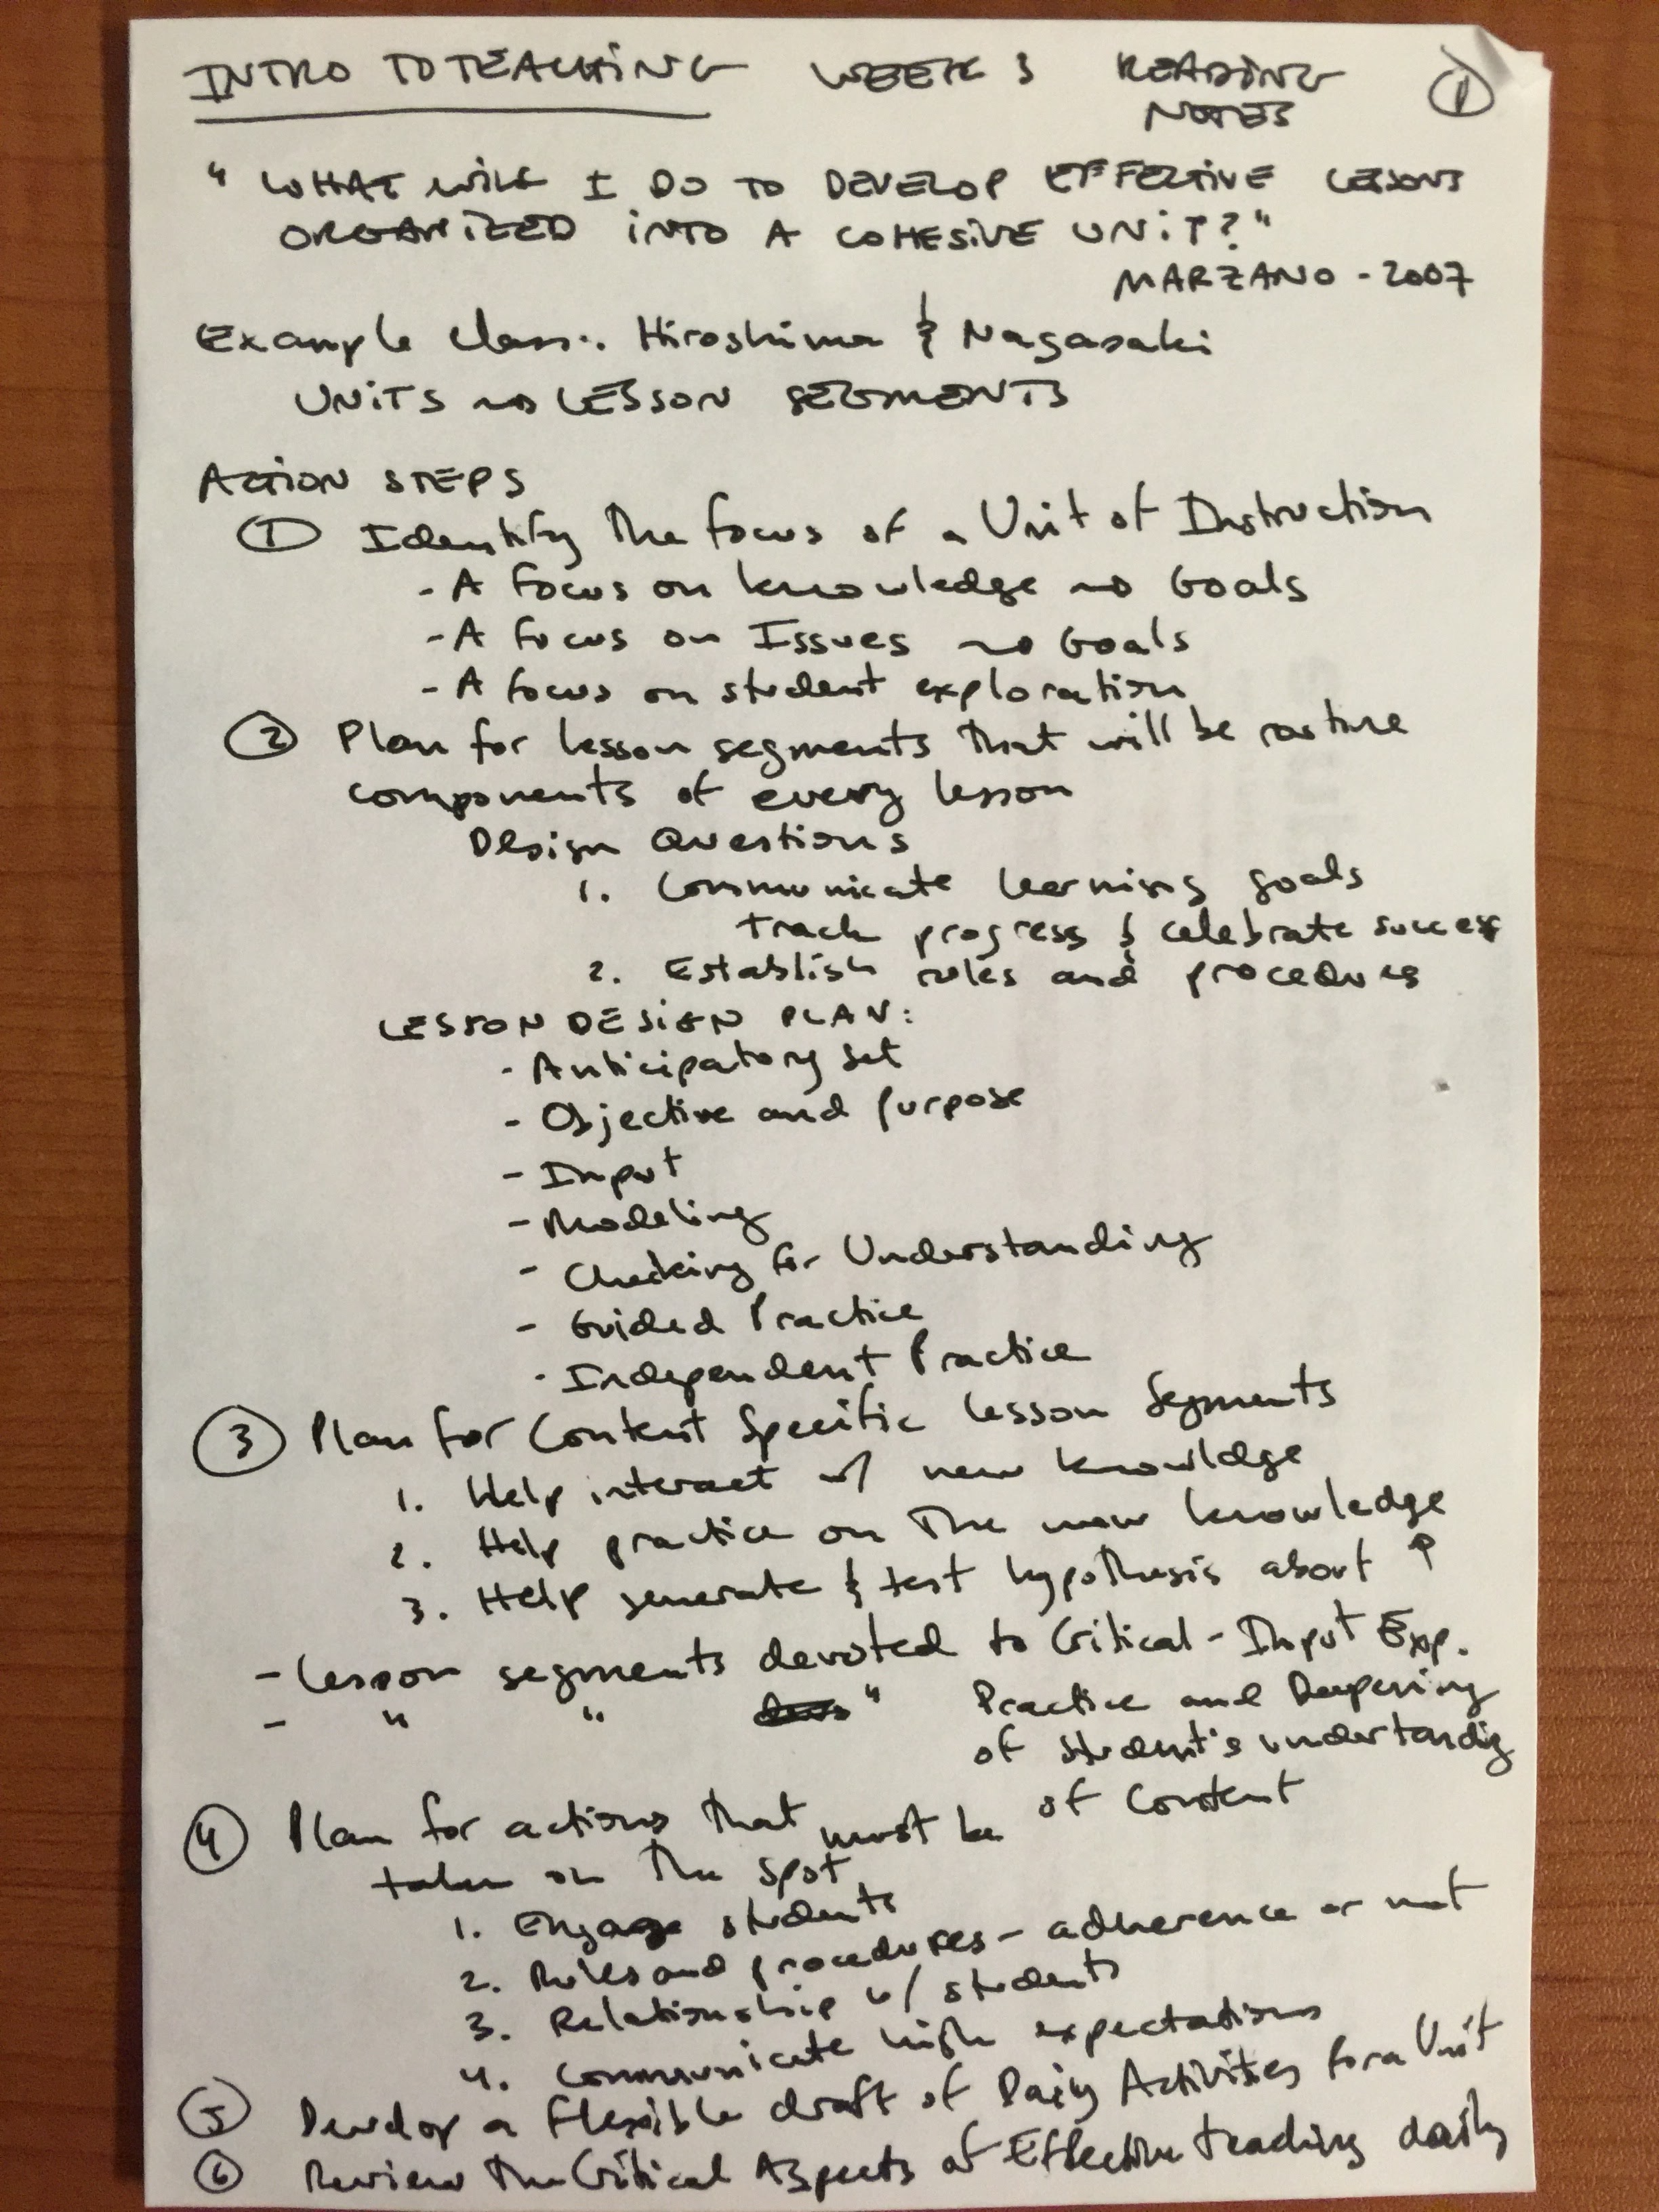 INTRO TO TEACHING WEEK 3 READING NOTES ①
"WHAT WILL I DO TO DEVELOP EFFECTIVE LESSONS
ORGANIZED INTO A COHESIVE UNIT?"
MARZANO - 2007
Example class: Hiroshima & Nagasaki
UNITS → LESSON SEGMENTS
ACTION STEPS
① Identify the focus of a Unit of Instruction
- A focus on knowledge → Goals
- A focus on Issues → Goals
- A focus on student exploration
② Plan for lesson segments that will be routine
components of every lesson
Design Questions
1. Communicate learning goals
track progress & celebrate success
2. Establish rules and procedures
LESSON DESIGN PLAN:
- Anticipatory set
- Objective and purpose
- Input
- Modeling
- Checking for Understanding
- Guided Practice
- Independent Practice
③ Plan for Content Specific lesson Segments
1. Help interact w/ new knowledge
2. Help practice on the new knowledge
3. Help generate & test hypothesis about ↑
- Lesson segments devoted to Critical-Input Exp.
- " " " Practice and Deepening
of student's understandig
of Content
④ Plan for actions that must be
taken on the spot
1. Engage students
2. Rules and procedures - adherence or not
3. Relationship w/ students
4. Communicate high expectations
⑤ Develop a flexible draft of Daily Activities for a Unit
⑥ Review the Critical Aspects of Effective teaching daily